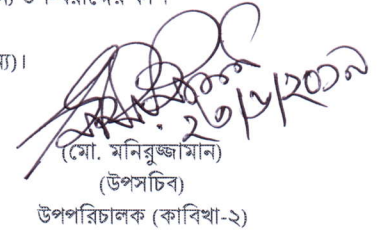 ন্য)।
২৩/৮/২০১৯
(মো. মনিরুজ্জামান)
(উপসচিব)
উপপরিচালক (কাবিখা-২)